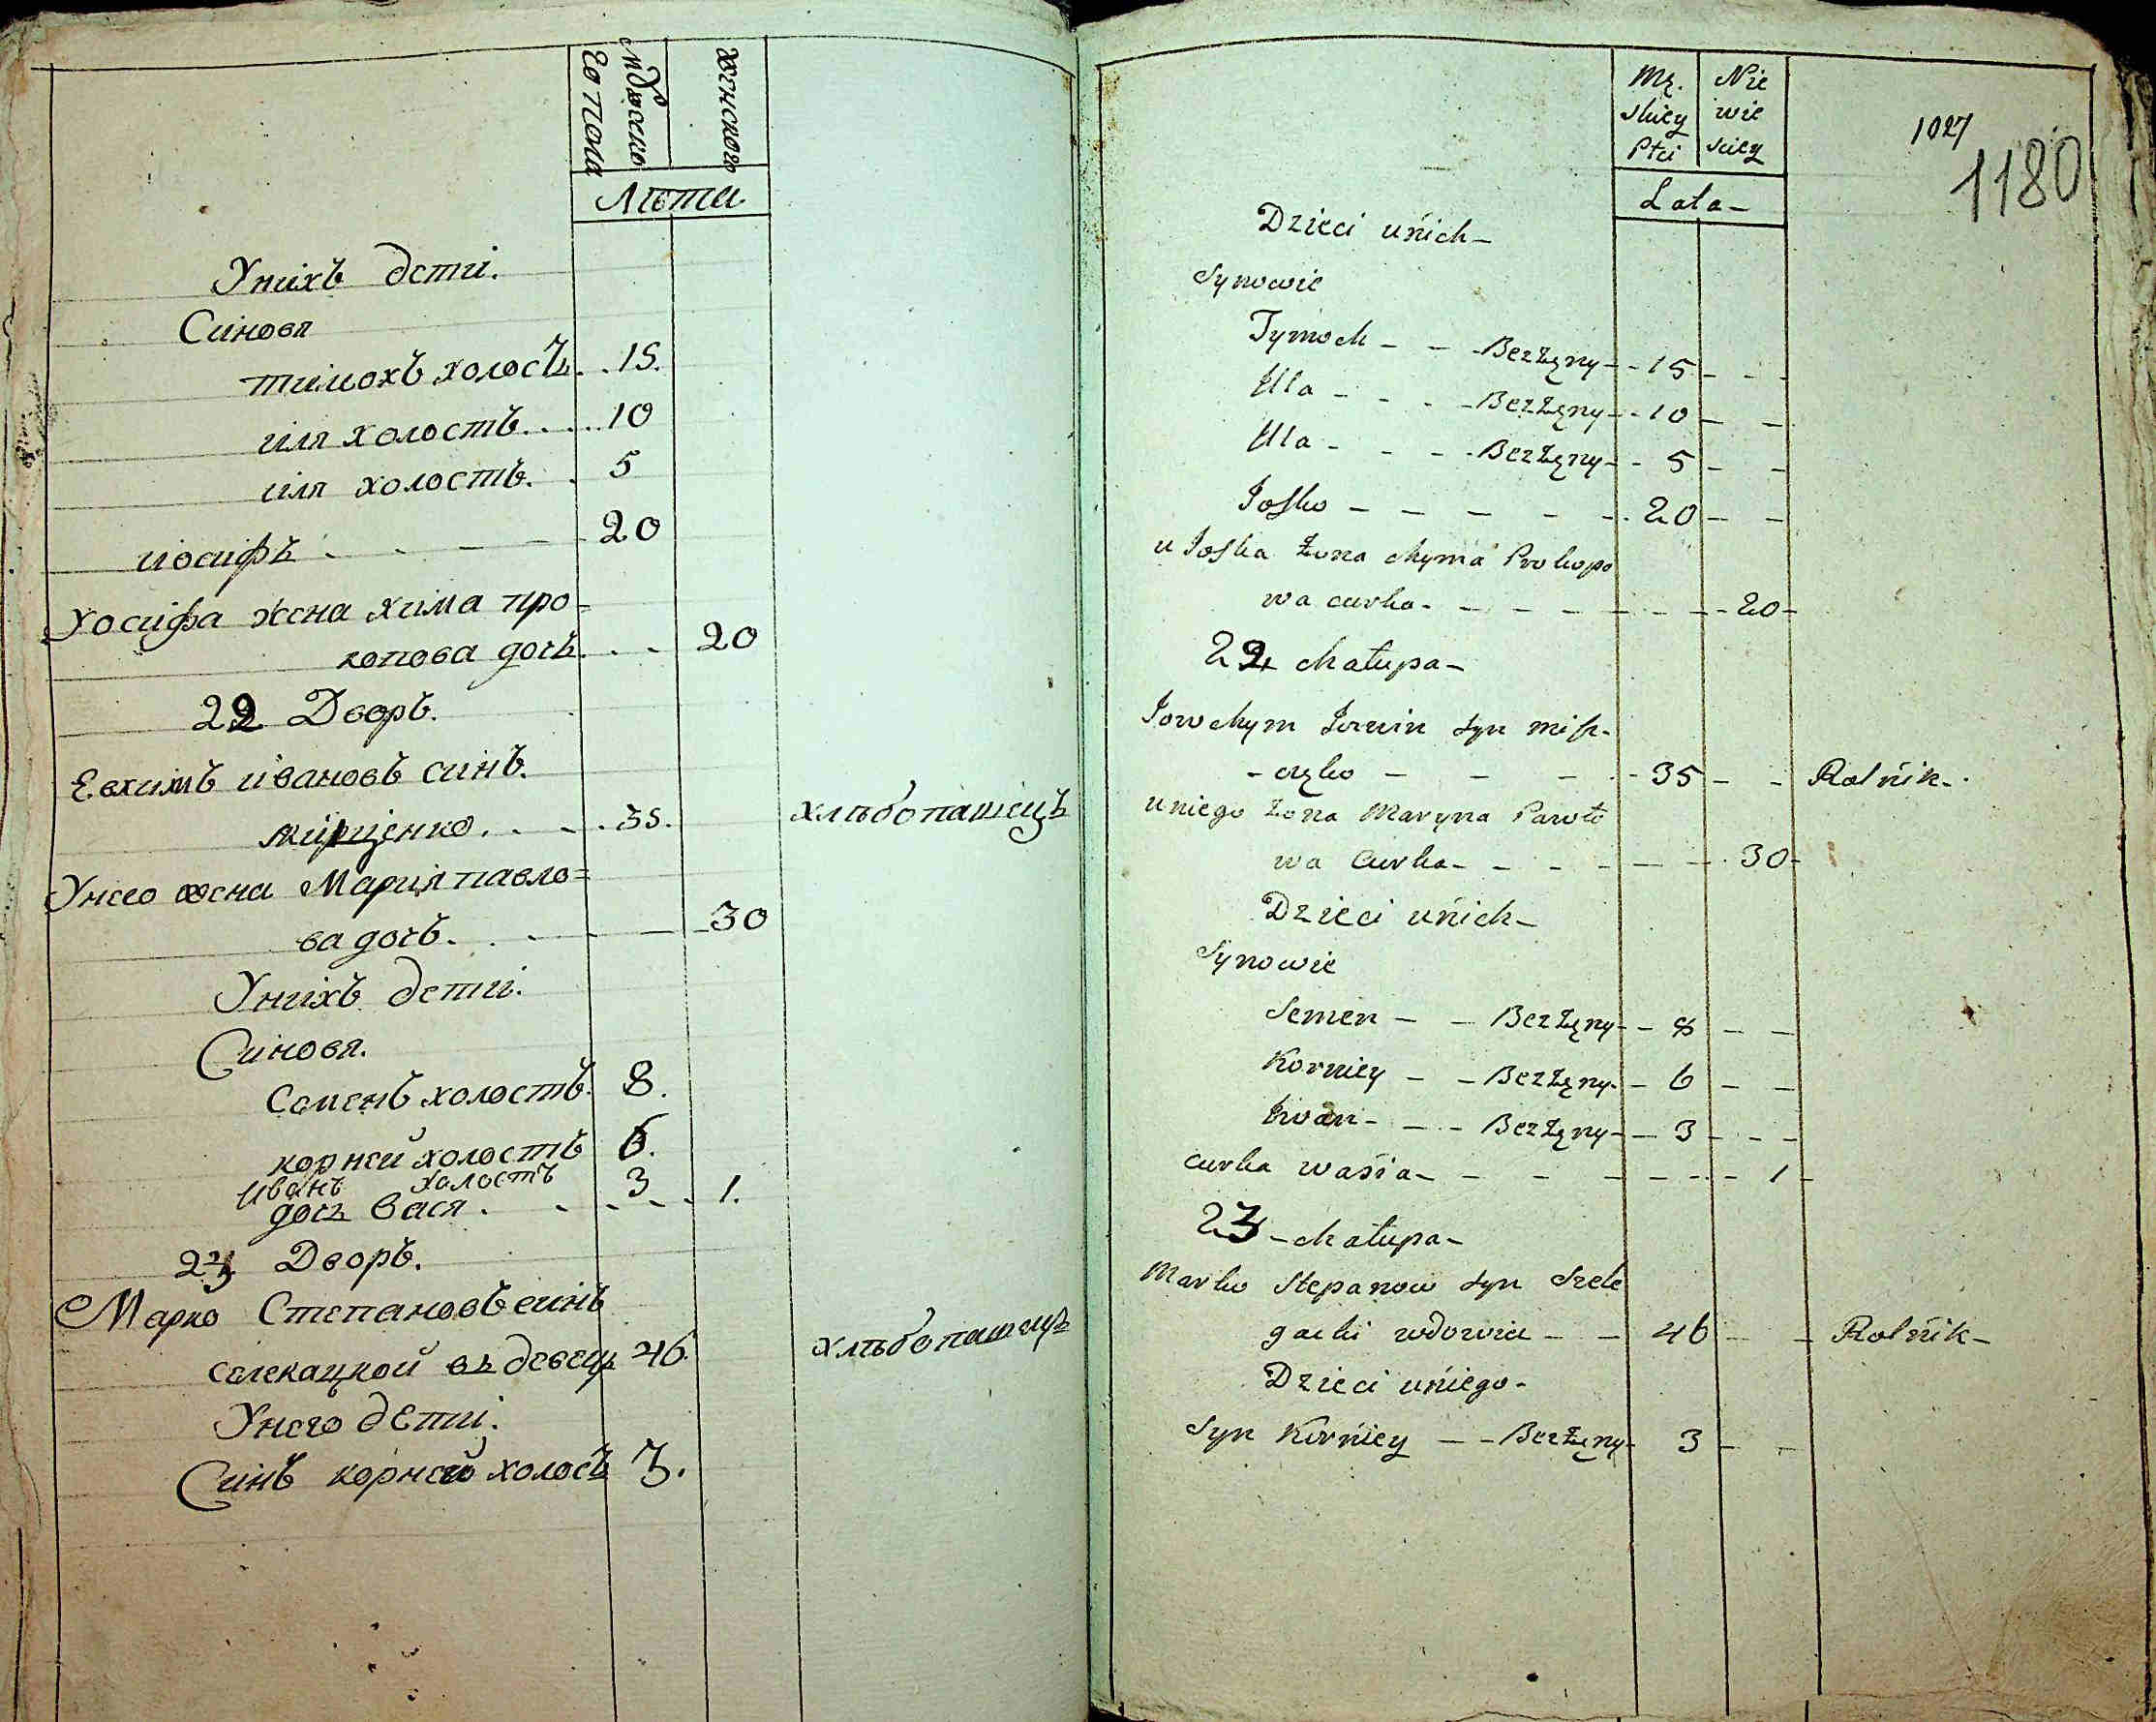 мужеско
го пола
женского
Лѣта
У нихъ дети.
Синовя
тимохъ холостъ . . 15.
иля холостъ . . . . 10
иля холостъ . . 5
иосифъ - - - 20
У осифа жена хима про=
копова дочъ . . - 20
22 Дворъ.
Евхимъ ивановъ синъ
мищенко . . - . 35. хлѣбопашецъ
У него жена Мария павло=
ва дочъ . . - - - 30
У нихъ дети.
Синовя.
Семенъ холостъ 8.
корней холостъ 6.
Иванъ холостъ 3
дочъ Вася . - - - - 1.
23 Дворъ.
Марко Степановъ синъ
селекацкой вдовецъ 46. хлѣбопашецъ
У него дети.
Синъ корней холостъ 3.
Mę. Nie
skiey wie
Płci sciey
1027
1180
Lata -
Dzieci unich -
Synowie
Tymoch - - - Bezżęny - - 15 - - -
Ila - - - - Bezżęny - - 10 - -
Ila - - - - Bezżęny - - 5 - -
Josko - - - - - - 20 - -
u Joska żona chyma Prokopo
wa curka - - - - - - - 20 -
22 chałupa -
Jowchym Iwanin syn misz-
- czko - - - - - 35 - - Rolnik -
uniego żona Maryna Pawło
wa Curka - - - - - - 30 -
Dzieci unich -
Synowie
Semen - - Bezżęny - - 8 - -
Korniey - - Bezżęny - - 6 - -
Iwan - - - Bezżęny - - 3 - - -
curka wasia - - - - - - - - 1 -
23 - chałupa -
Marko Stepanow syn Szele
gacki wdowiec - - 46 - - Rolnik -
Dzieci uniego -
Syn Korniey - - Bezżęny - 3 - -